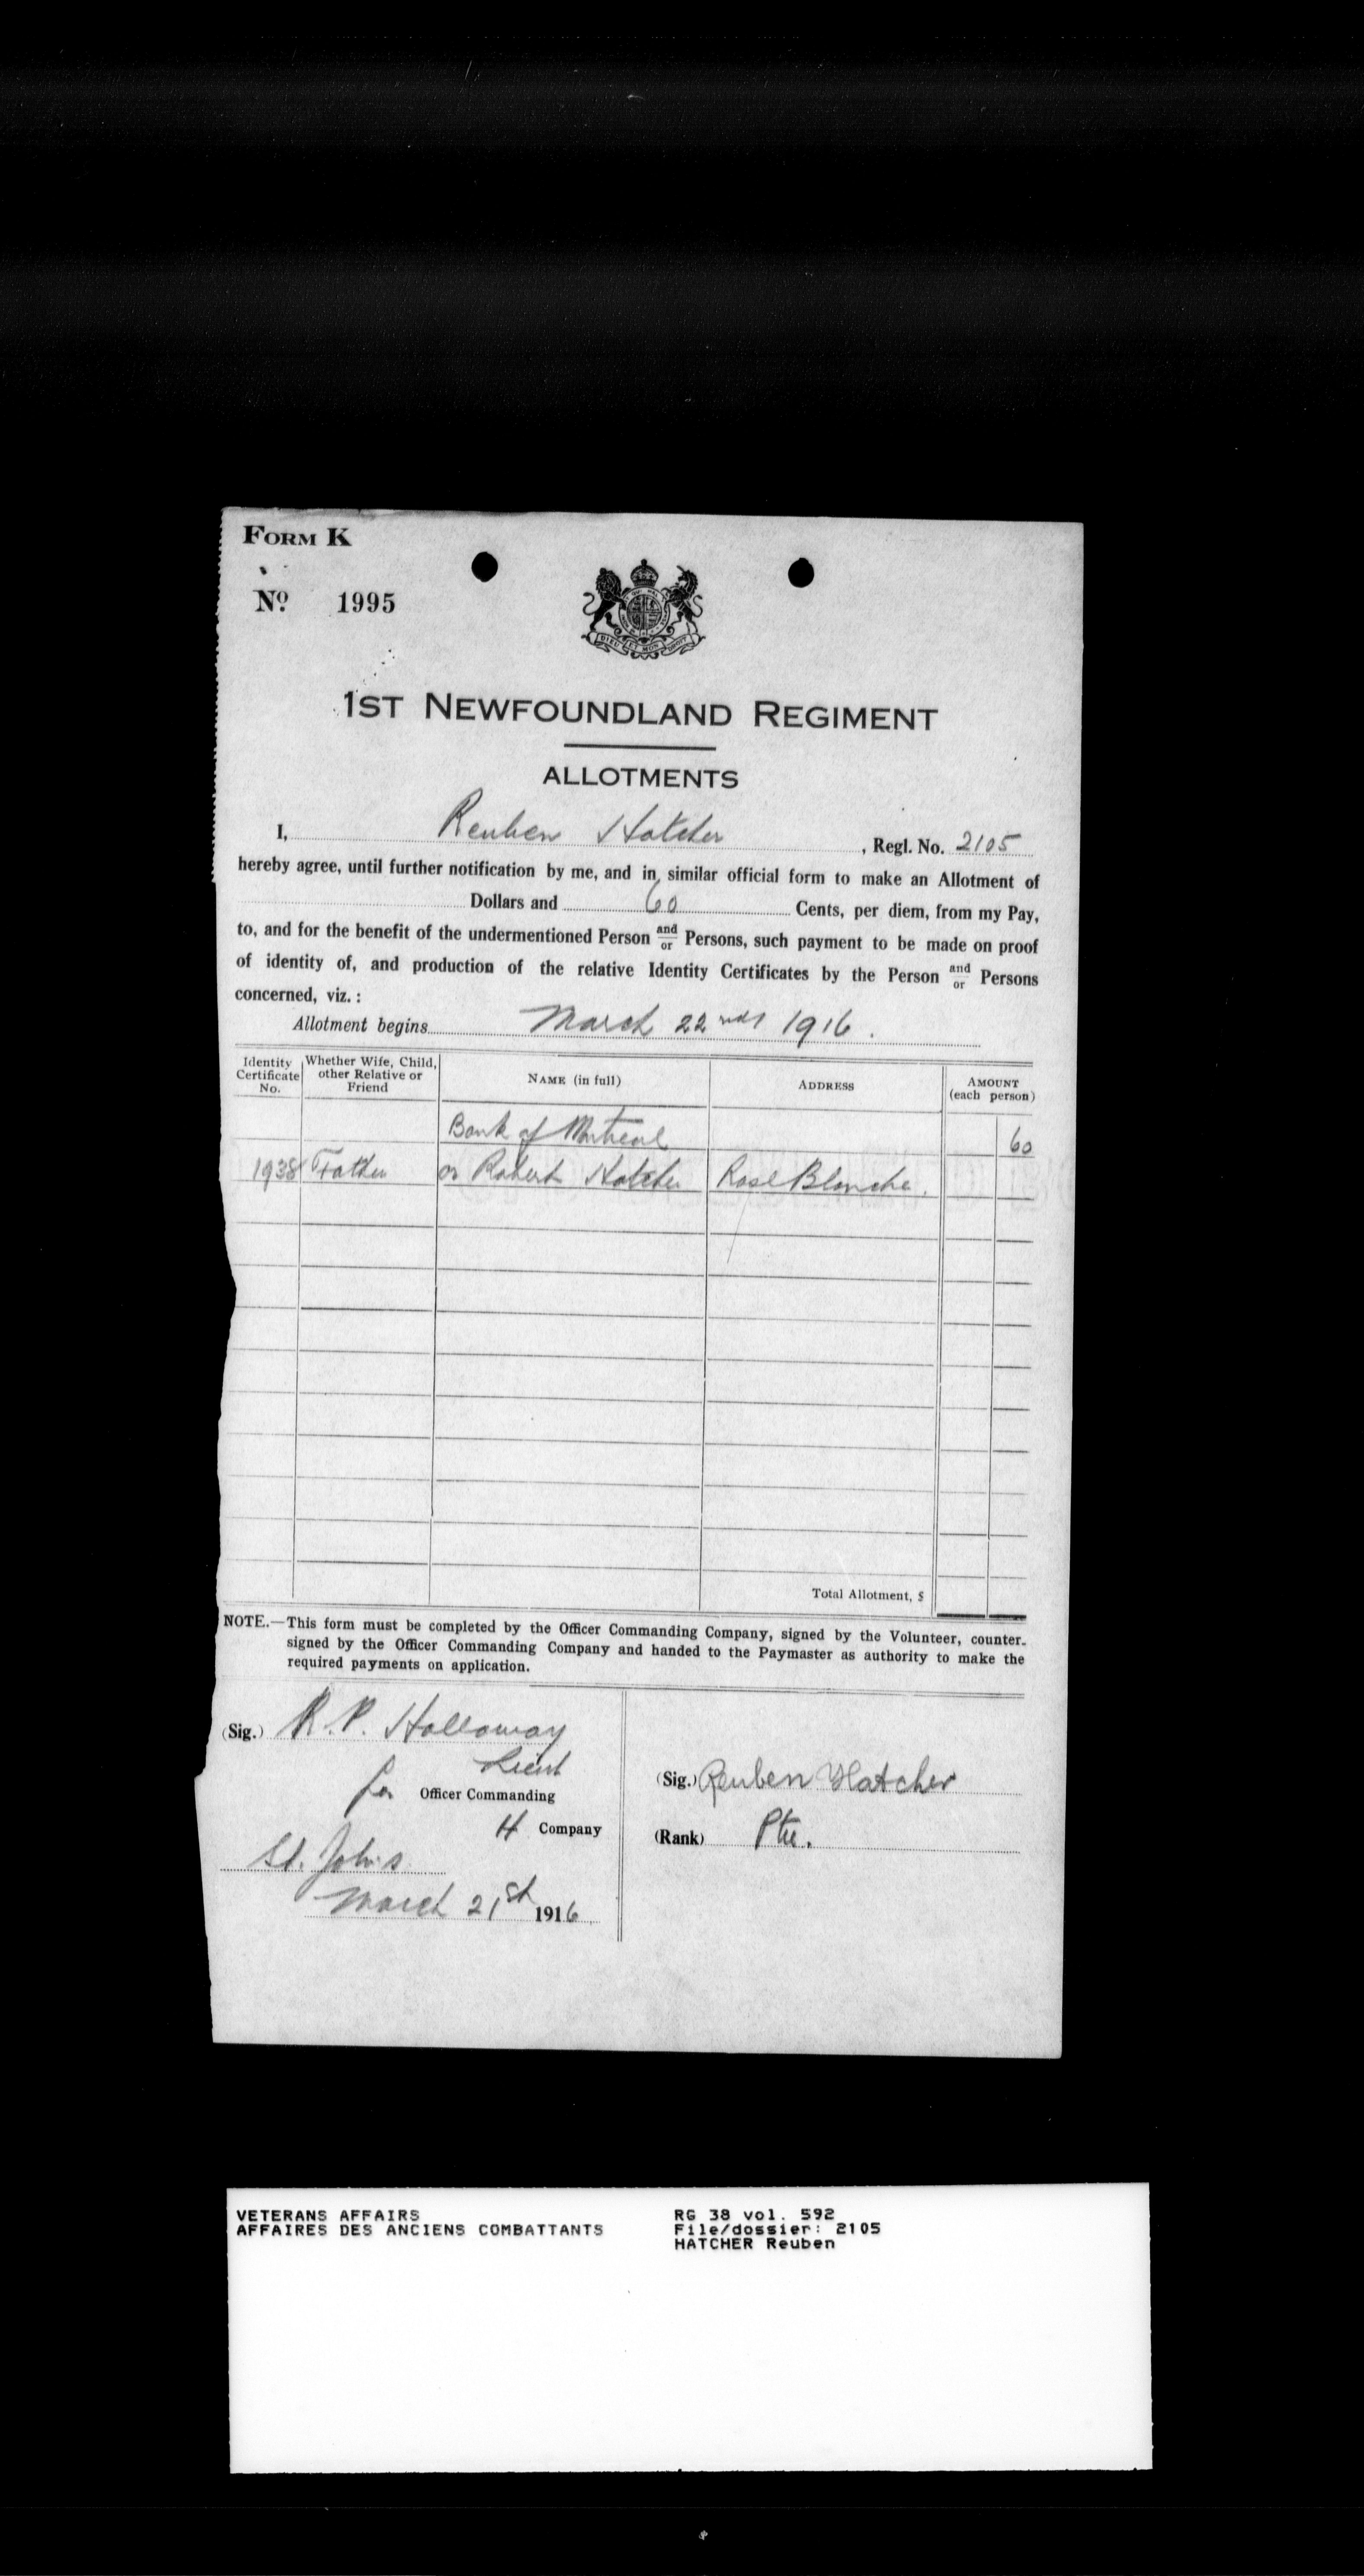 FORM K
No. 1995
DIEU ET MON DROIT
1ST NEWFOUNDLAND REGIMENT
ALLOTMENTS
I, Reuben Hatcher, Regl. No. 2105
hereby agree, until further notification by me, and in similar official form to make an Allotment of
Dollars and 60 Cents, per diem, from my Pay,
to, and for the benefit of the undermentioned Person and/or Persons, such payment to be made on proof
of identity of, and production of the relative Identity Certificates by the Person and/or Persons
concerned, viz.:
Allotment begins March 22nd 1916.
Identity Certificate No. Whether Wife, Child, other Relative or Friend NAME (in full) ADDRESS AMOUNT (each person)
Bank of Montreal 60
1938 Father or Robert Hatcher Rose Blanche.
Total Allotment, $
NOTE.—This form must be completed by the Officer Commanding Company, signed by the Volunteer, counter-
signed by the Officer Commanding Company and handed to the Paymaster as authority to make the
required payments on application.
(Sig.) R.P. Holloway
Lieut
for Officer Commanding
H Company
St. John's
March 21st 1916
(Sig.) Reuben Hatcher
(Rank) Pte.
VETERANS AFFAIRS
AFFAIRES DES ANCIENS COMBATTANTS
RG 38 vol. 592
File/dossier: 2105
HATCHER Reuben